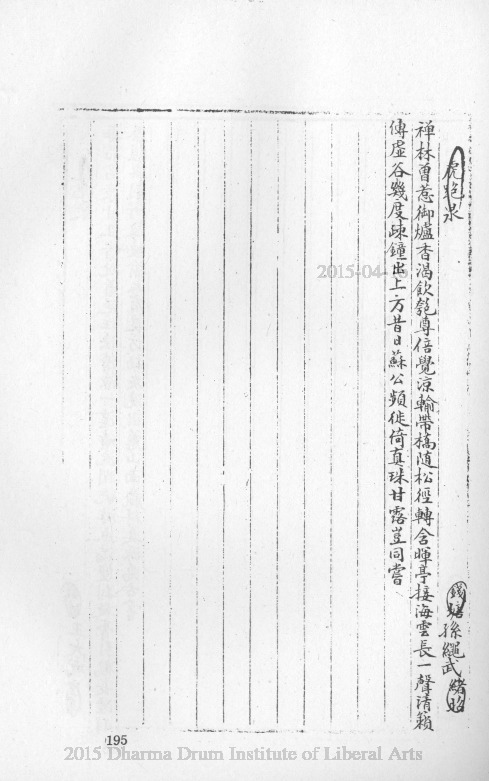 虎跑泉
錢塘孫繩武緒昭
禅林曾惹御爐香渴飲匏尊倍覺涼輸帶橋隨松徑轉含暉亭接海雲長一聲清籟
傳虛谷幾度疎鐘出上方昔日蘇公頻徙倚真珠甘露豈同嘗
2015-04-
195
2015 Dharma Drum Institute of Liberal Arts